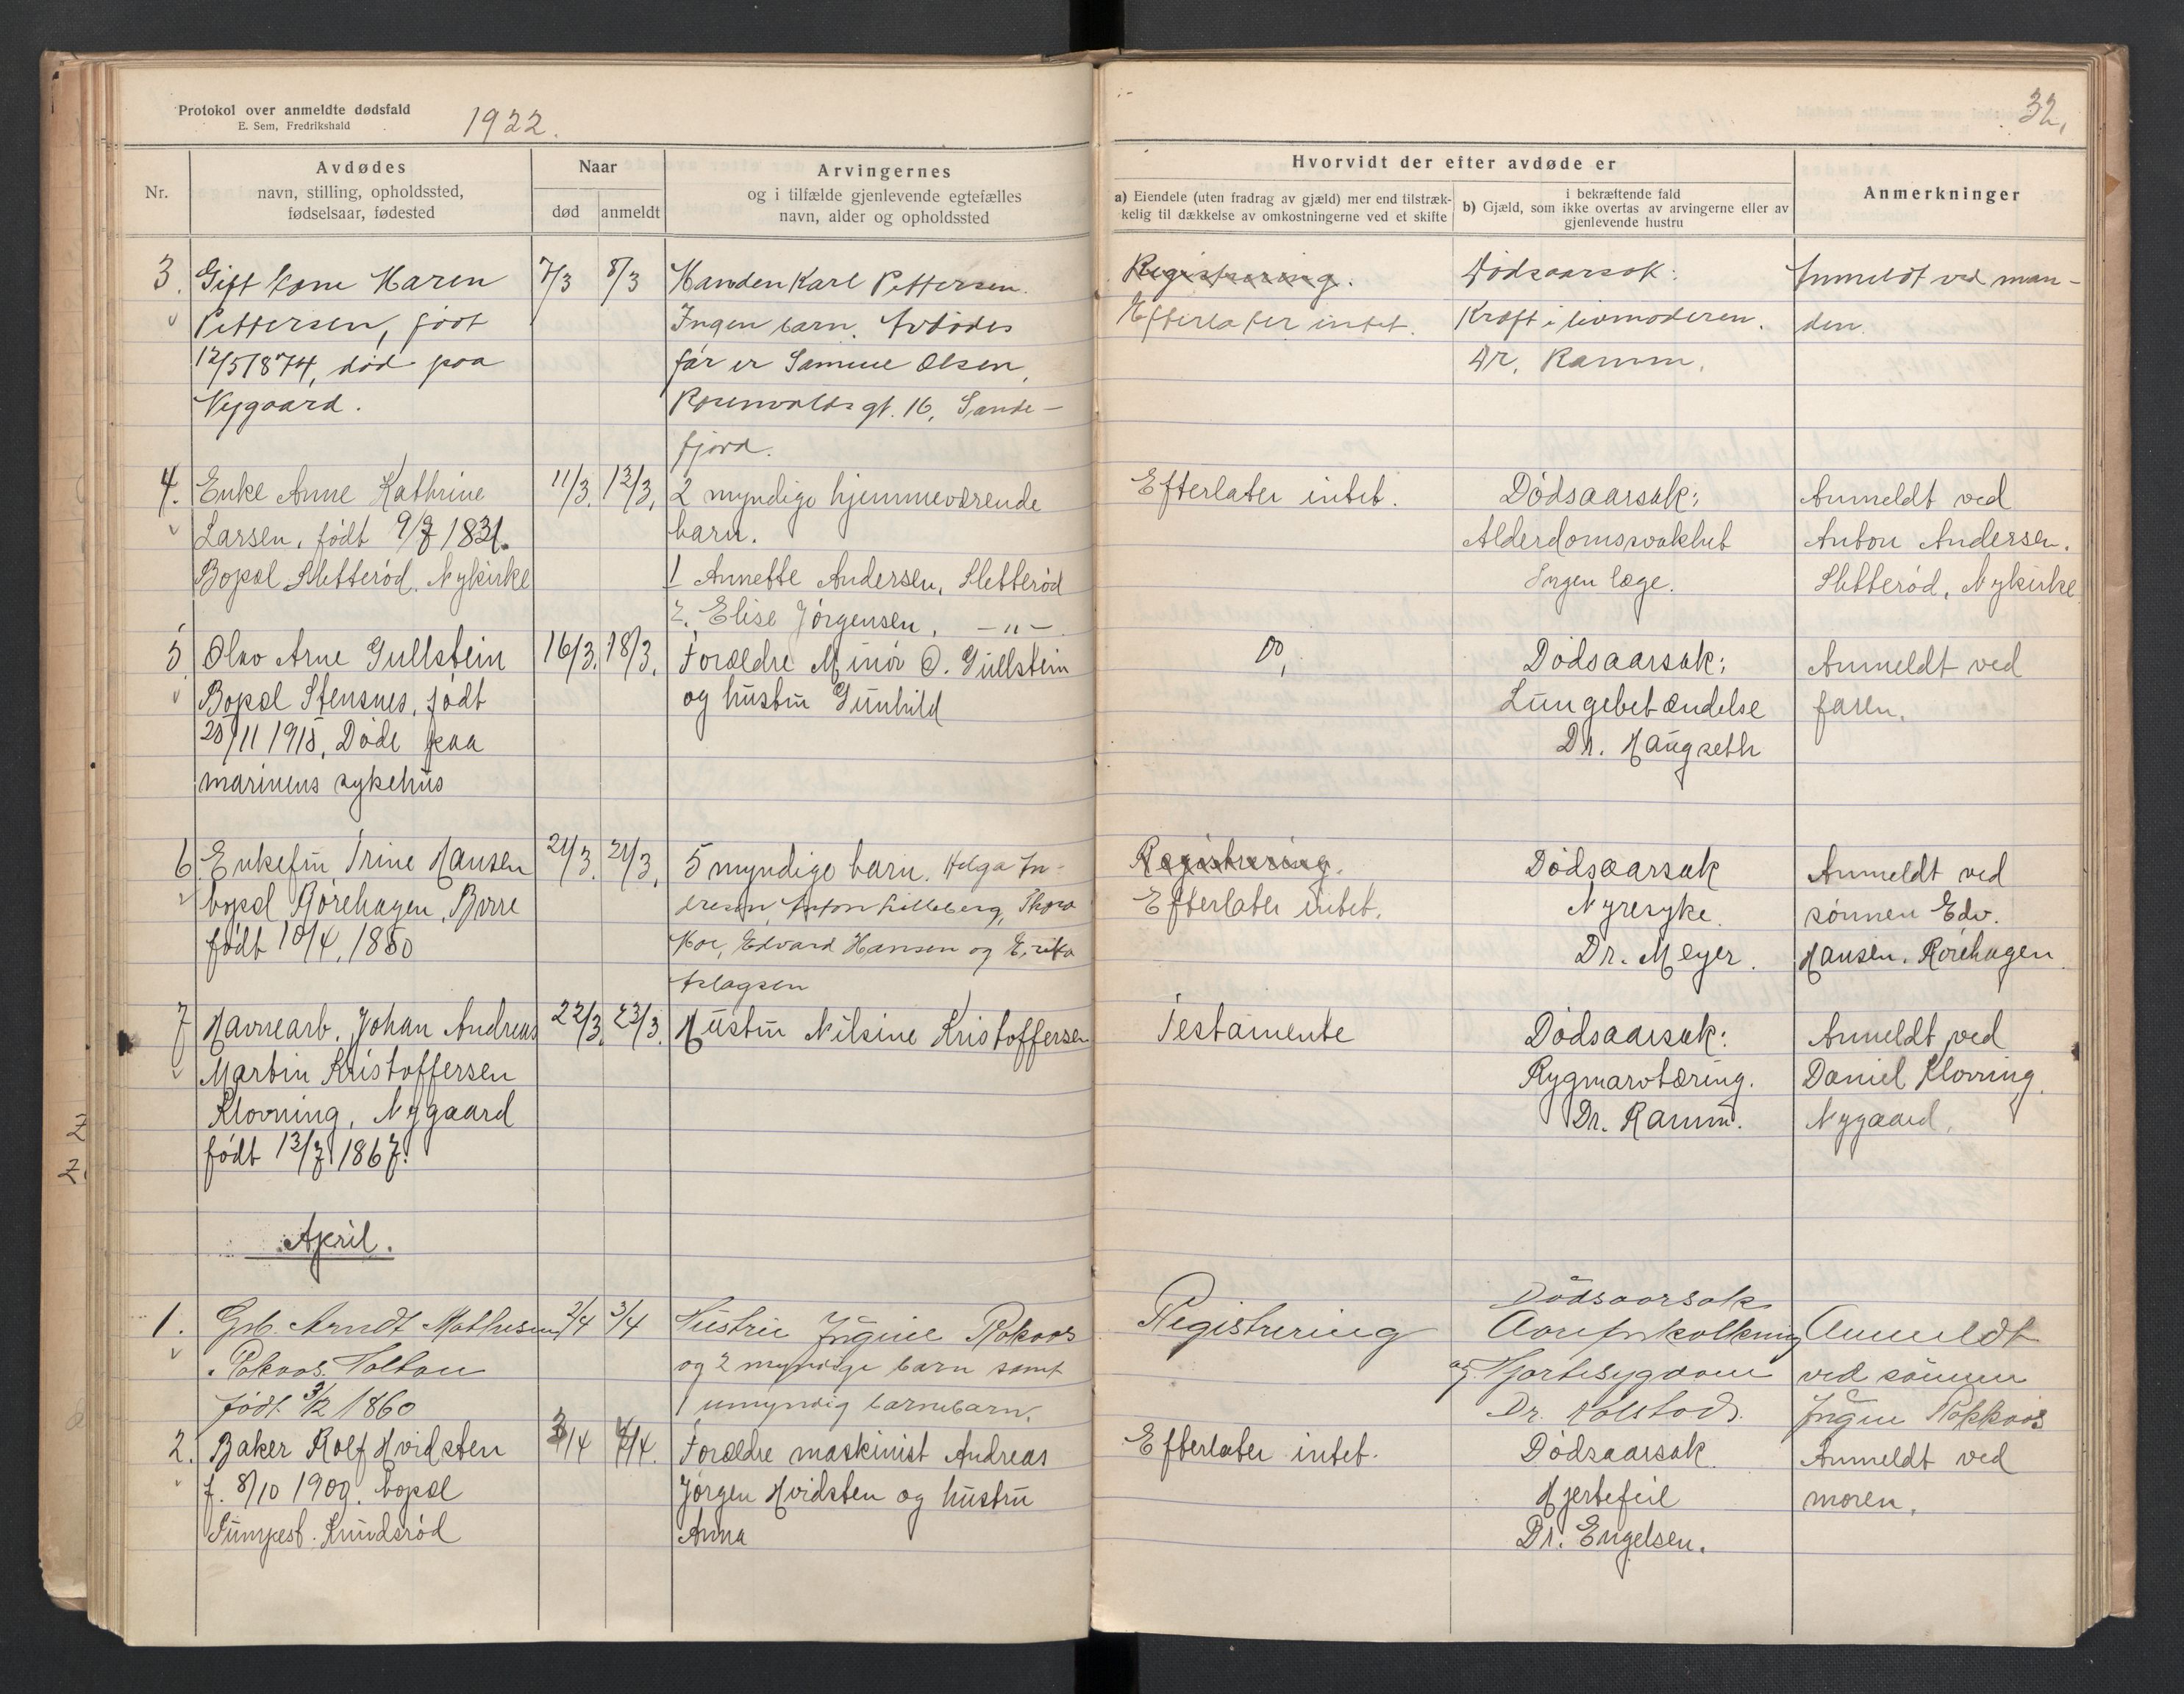 Protokol over anmeldte dødsfald
E. Sem, Fredrikshald
1922.
32.
Nr.
Avdødes
navn, stilling, opholdssted,
fødselsaar, fødested
Naar
død
anmeldt
Arvingernes
og i tilfælde gjenlevende egtefælles
navn, alder og opholdssted
Hvorvidt der efter avdøde er
a) Eiendele (uten fradrag av gjæld) mer end tilstræk-
kelig til dækkelse av omkostningerne ved et skifte
i bekræftende fald
b) Gjæld, som ikke overtas av arvingerne eller av
gjenlevende hustru
Anmerkninger
3. Gift kone Maren 7/3 8/3 Manden Karl Pettersen. Registrering. Dødsaarsak: Anmeldt ved man-
Pettersen, født Ingen barn. Avdødes Efterlater intet. Kræft i livmoderen. den.
12/5 1874, død paa far er Samuel Olsen, Dr. Ramm.
Nygaard. Rosenvoldsgt. 16, Sande-
fjord.
4. Enke Anne Kathrine 11/3. 13/3. 2 myndige hjemmeværende Efterlater intet. Dødsaarsak: Anmeldt ved
Larsen, født 9/7 1831. barn. Alderdomssvakhet Anton Andersen.
Bopæl Sletterød, Nykirke 1 Annette Andersen, Sletterød Ingen læge. Sletterød, Nykirke
2. Elise Jørgensen, -"-
5. Olav Arne Gullstein 16/3. 18/3. Forældre Minør O. Gullstein Do. Dødsaarsak: Anmeldt ved
Bopæl Stensnes, født og hustru Gunhild Lungebetændelse faren.
25/11 1915, Døde paa Dr. Haugseth
marinens sykehus
6. Enkefru Trine Hansen 21/3. 21/3. 5 myndige barn. Helga In- Registrering. Dødsaarsak Anmeldt ved
bopæl Rørehagen, Borre dresen, Anton Lilleberg, Thora Efterlater intet. Nyresyke. sønnen Edv.
født 10/4. 1850 Moe, Edvard Hansen og Erika Dr. Meyer. Hansen, Rørehagen
Aslagsen
7 Havnearb. Johan Andreas 22/3. 23/3. Hustru Nilsine Kristoffersen Testamente Dødsaarsak: Anmeldt ved
Martin Kristoffersen Rygmarvtæring. Daniel Klovning
Klovning, Nygaard Dr. Ramm. Nygaard.
født 13/7 1867.
April.
1. Grb. Arndt Mathisen 2/4 3/4 Hustru Ingine Rokoos Registrering Dødsaarsak Aareforkalkning Anmeldt
Rokoos. Toltau og 2 myndige barn samt og Hjertesygdom ved sønnen
født 3/12 1860 1 umyndig barnebarn. Dr. Kolstad. Ingine Rokkoos
2. Baker Rolf Hvidsten 3/4 4/4. Forældre maskinist Andreas Efterlater intet. Dødsaarsak Anmeldt ved
f. 8/10 1909. bopæl Jørgen Hvidsten og hustru Hjertefeil moren.
Knudsrød Anna Dr. Engelsen.